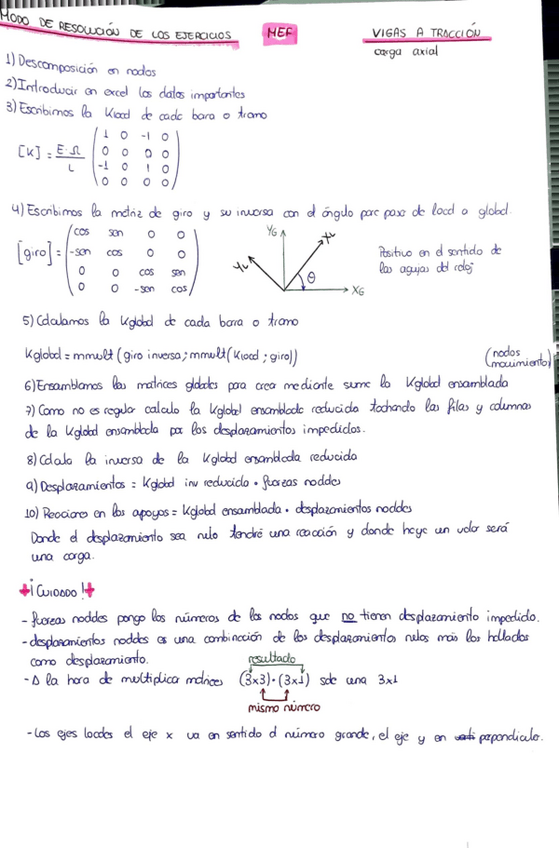 MODO DE RESOLUCIÓN DE LOS EJERCICIOS MEF VIGAS A TRACCIÓN
carga axial
1) Descomposición en nodos
2) Introducir en excel los datos importantes
3) Escribimos la Klocal de cada barra o tramo
[K] = E·Ω / L
1 0 -1 0
0 0 0 0
-1 0 1 0
0 0 0 0
4) Escribimos la matriz de giro y su inversa con el ángulo para pasar de local a global.
[giro] =
cos sen 0 0
-sen cos 0 0
0 0 cos sen
0 0 -sen cos
YG XL YL θ XG
Positivo en el sentido de
las agujas del reloj
5) Calculamos la Kglobal de cada barra o tramo
Kglobal = mmult (giro inversa; mmult (Klocal; giro))
(nodos
movimiento)
6) Ensamblamos las matrices globales para crear mediante suma la Kglobal ensamblada
7) Como no es regular calculo la Kglobal ensamblada reducida tachando las filas y columnas
de la Kglobal ensamblada por los desplazamientos impedidos.
8) Calculo la inversa de la Kglobal ensamblada reducida
9) Desplazamientos = Kglobal inv reducida · fuerzas nodales
10) Reacciones en los apoyos = Kglobal ensamblada · desplazamientos nodales
Donde el desplazamiento sea nulo tendré una reacción y donde haya un valor será
una carga.
¡CUIDADO!
- fuerzas nodales pongo los números de los nodos que no tienen desplazamiento impedido.
- desplazamientos nodales es una combinación de los desplazamientos nulos más los hallados
como desplazamiento.
resultado
- A la hora de multiplicar matrices (3x3)·(3x1) sale una 3x1
mismo número
- Los ejes locales el eje x va en sentido al número grande, el eje y en perpendicular.